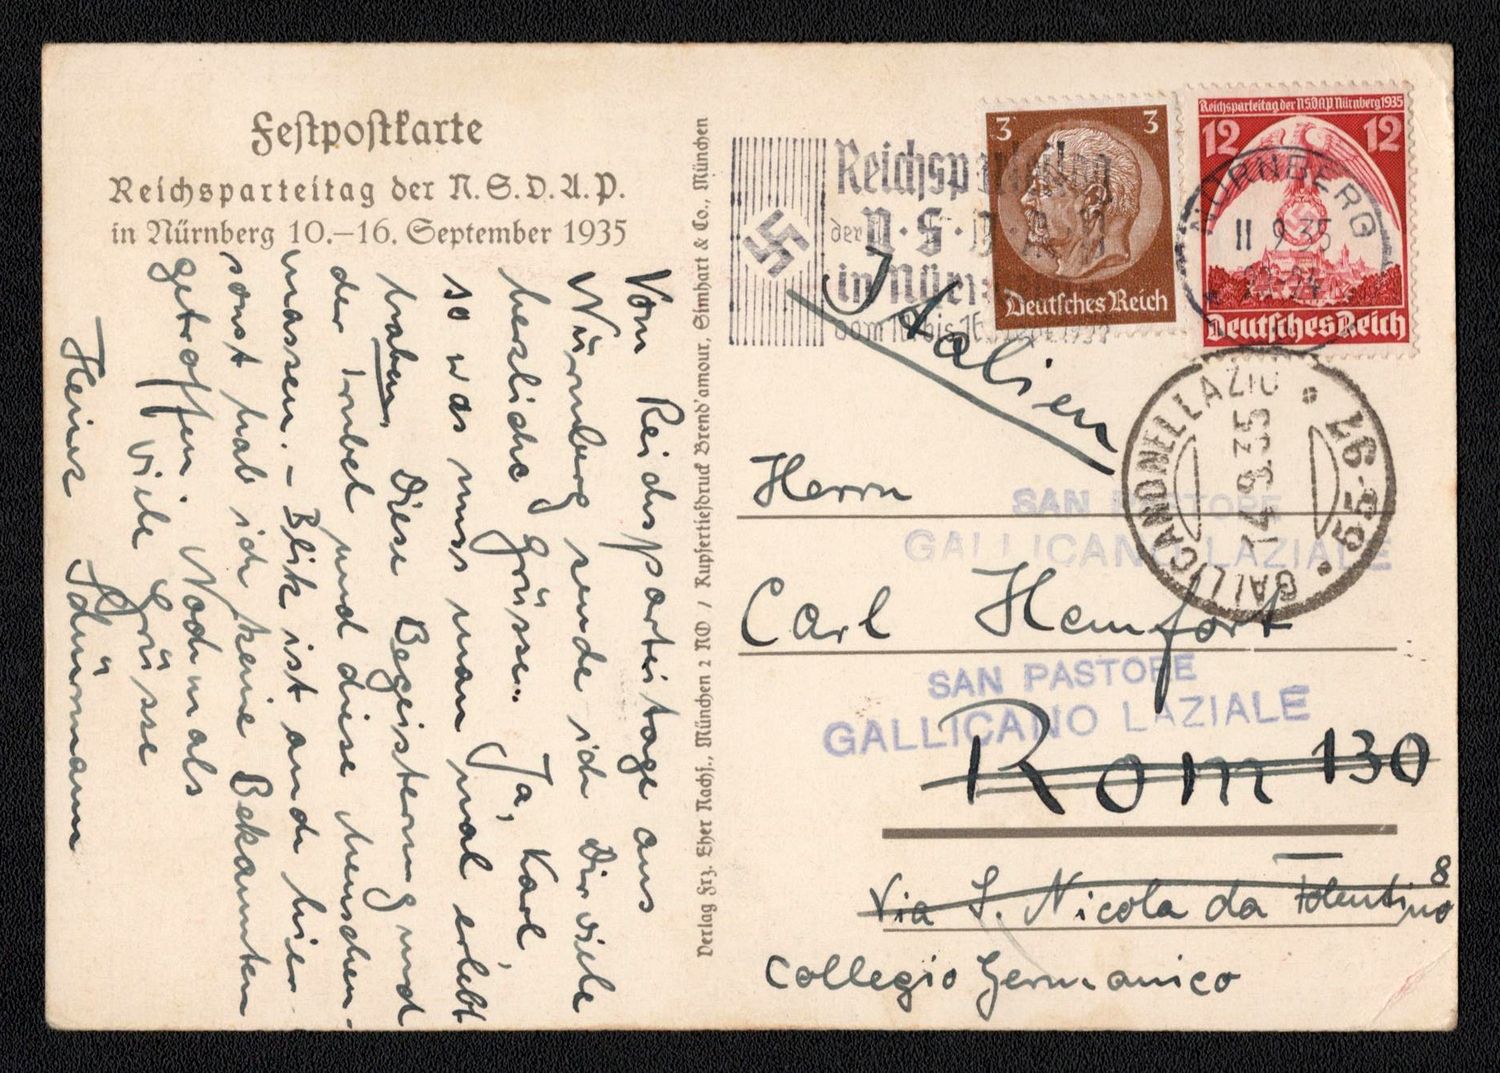 Festpostkarte
Reichsparteitag der N.S.D.A.P.
in Nürnberg 10.–16. September 1935
Vom Reichsparteitage aus
Nürnberg sende ich Dir viele
herzliche Grüsse. Ja, Karl,
so was muss man mal erlebt
haben, Diese Begeisterung und
der Trubel und diese Menschen-
massen. – Blik ist auch hier
sonst hab ich keine Bekannten
getroffen. Nochmals
viele Grüsse
Heinz Schürmann
Verlag Frz. Eher Nachf., München 2 NO / Kupfertiefdruck Brend'amour, Simhart & Co., München
Reichsparteitag
der N·S·D·A·P
in Nürn
vom 10. bis 16. Sept. 1935
3 3
Deutsches Reich
Reichsparteitag der NSDAP Nürnberg 1935
12 12
Deutsches Reich
NÜRNBERG
11.9.35
GALLICANO NEL LAZIO
14.9.35
55-97
Italien
Herrn
SAN PASTORE
GALLICANO LAZIALE
Carl Hemfort
SAN PASTORE
GALLICANO LAZIALE
Rom 130
Via S. Nicola da Tolentino 8
Collegio Germanico